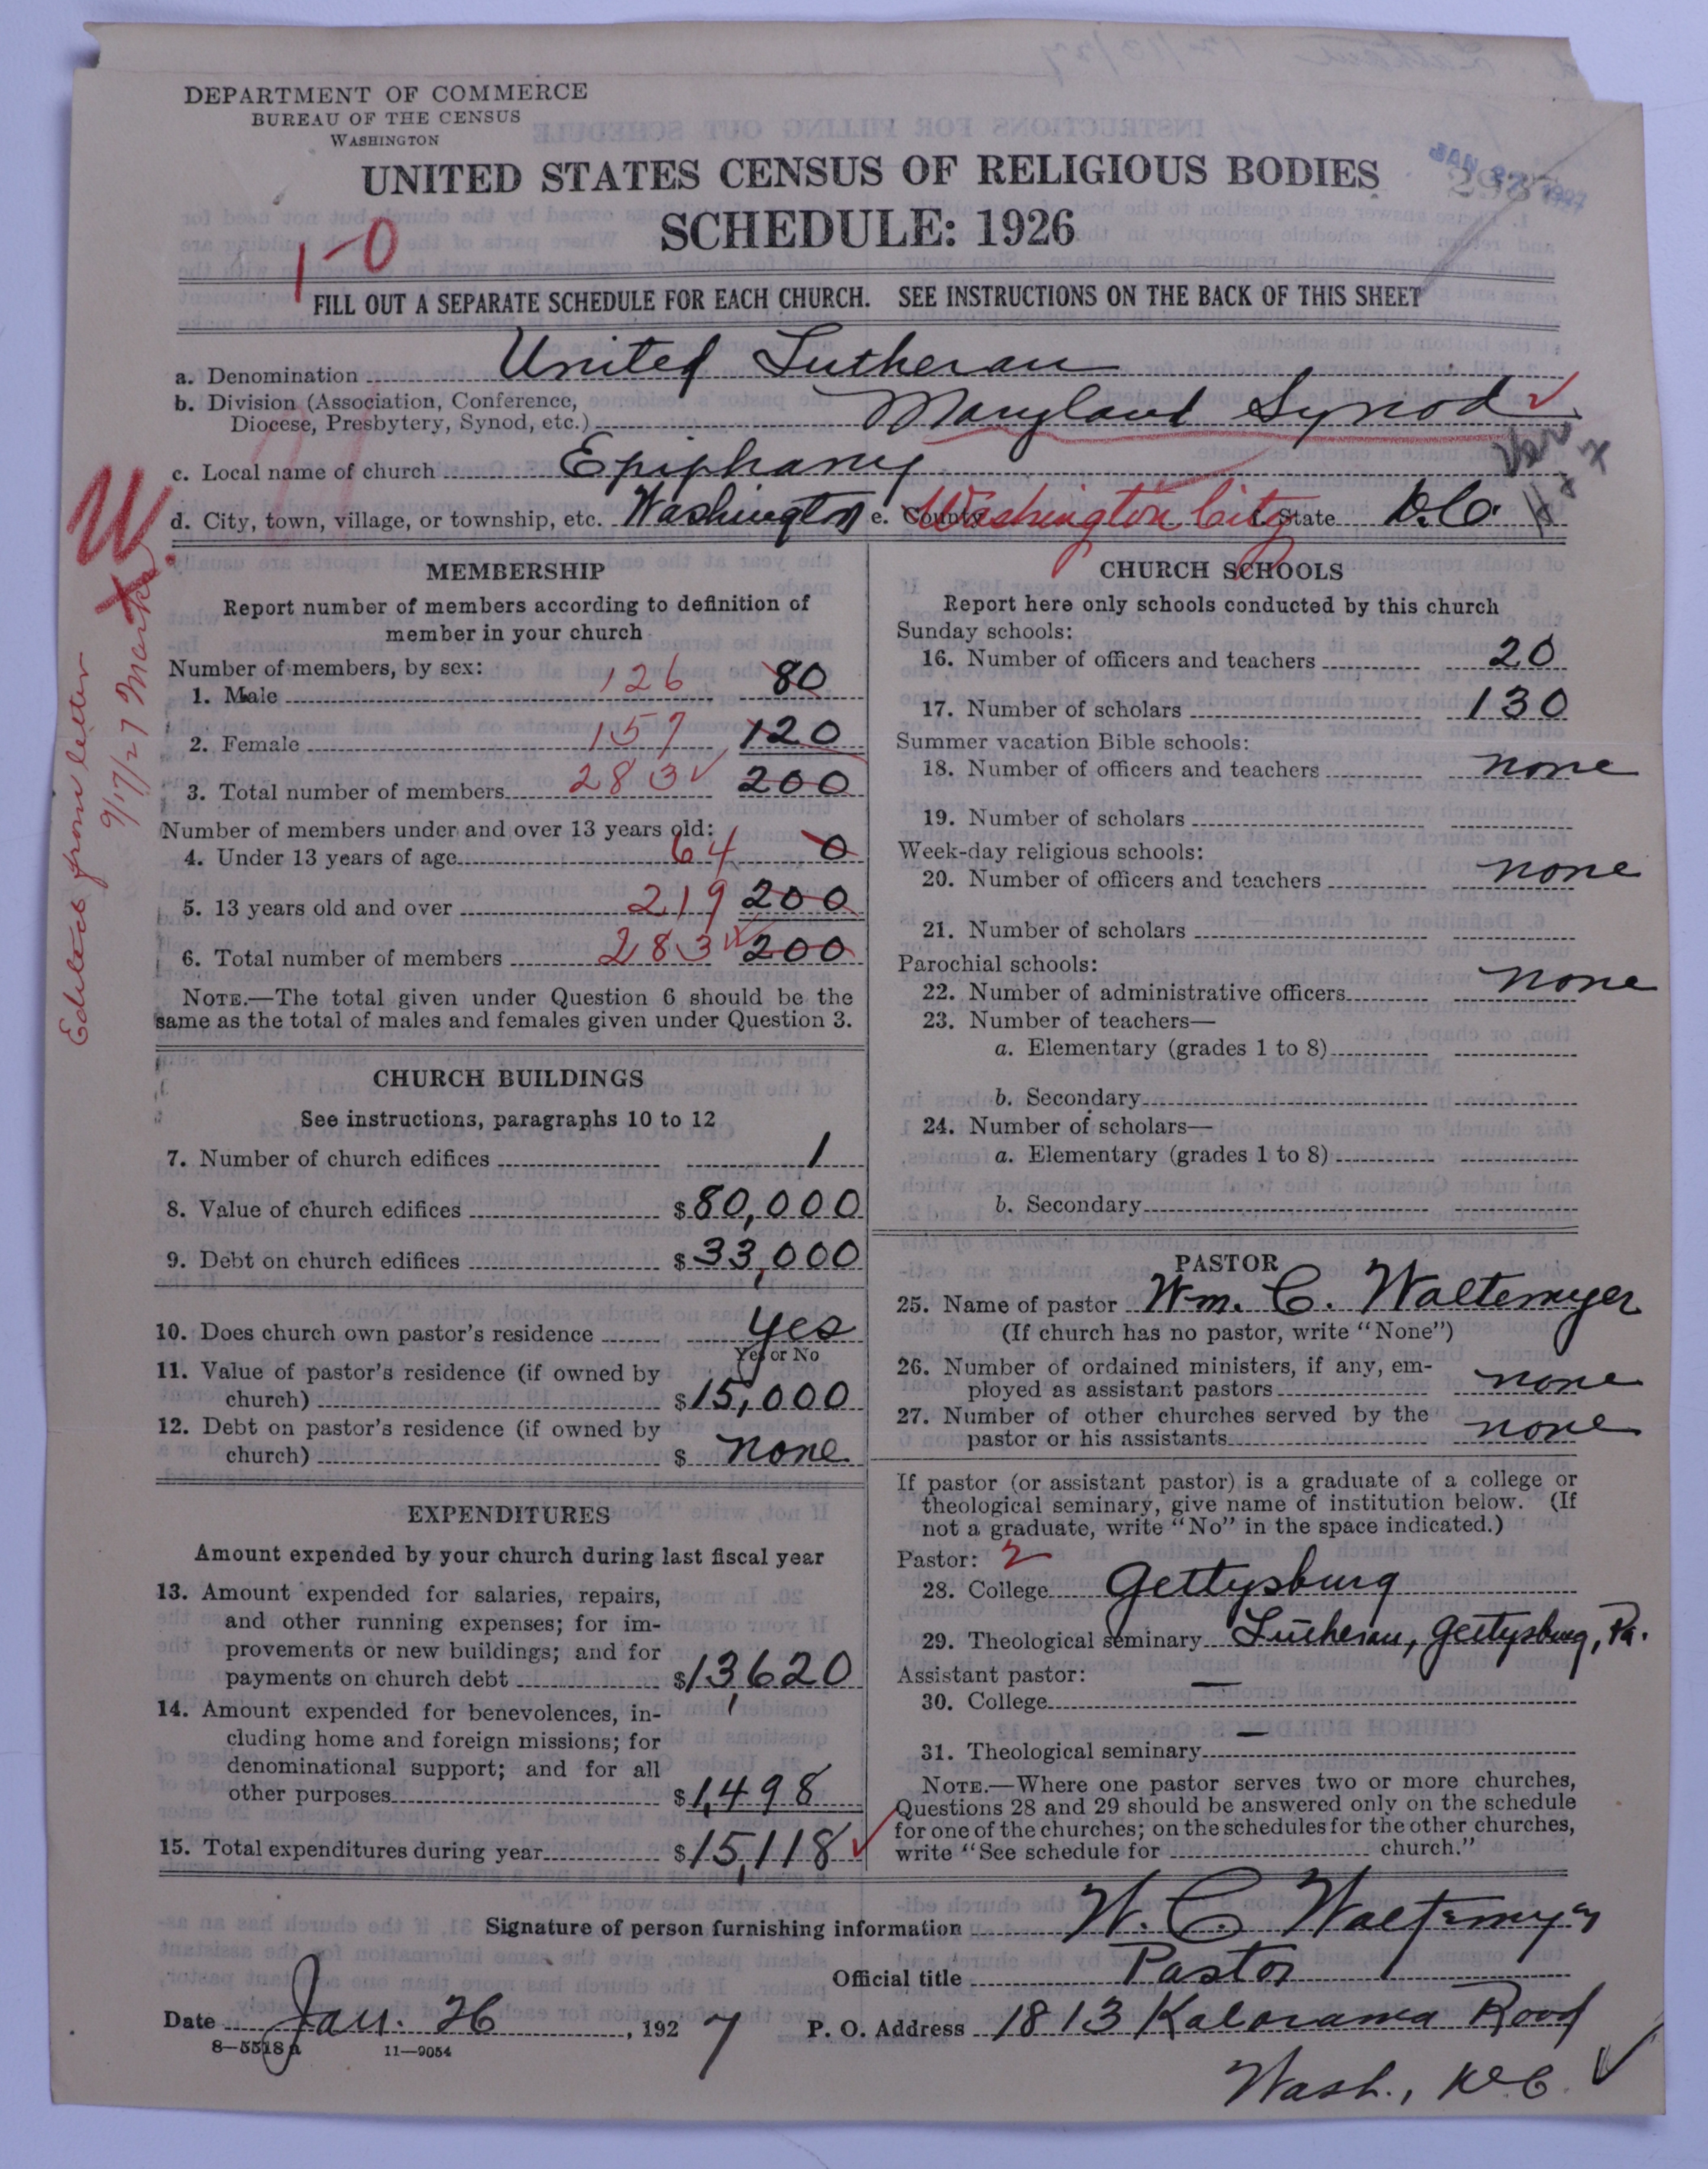 DEPARTMENT OF COMMERCE
BUREAU OF THE CENSUS
WASHINGTON
UNITED STATES CENSUS OF RELIGIOUS BODIES
SCHEDULE: 1926
1-0
FILL OUT A SEPARATE SCHEDULE FOR EACH CHURCH. SEE INSTRUCTIONS ON THE BACK OF THIS SHEET
a. Denomination United Lutheran
b. Division (Association, Conference,
Diocese, Presbytery, Synod, etc.) Maryland Synod
c. Local name of church Epiphany
d. City, town, village, or township, etc. Washington e. County Washington City f. State D.C.
W.
Edited from letter
9/17/27 Marks
MEMBERSHIP
Report number of members according to definition of
member in your church
Number of members, by sex:
1. Male 126 80
2. Female 157 120
3. Total number of members 283 200
Number of members under and over 13 years old:
4. Under 13 years of age 64 0
5. 13 years old and over 219 200
6. Total number of members 283 200
NOTE.—The total given under Question 6 should be the
same as the total of males and females given under Question 3.
CHURCH BUILDINGS
See instructions, paragraphs 10 to 12
7. Number of church edifices 1
8. Value of church edifices $80,000
9. Debt on church edifices $33,000
10. Does church own pastor's residence yes
Yes or No
11. Value of pastor's residence (if owned by
church) $15,000
12. Debt on pastor's residence (if owned by
church) $ none
EXPENDITURES
Amount expended by your church during last fiscal year
13. Amount expended for salaries, repairs,
and other running expenses; for im-
provements or new buildings; and for
payments on church debt $13,620
14. Amount expended for benevolences, in-
cluding home and foreign missions; for
denominational support; and for all
other purposes $1,498
15. Total expenditures during year $15,118
CHURCH SCHOOLS
Report here only schools conducted by this church
Sunday schools:
16. Number of officers and teachers 20
17. Number of scholars 130
Summer vacation Bible schools:
18. Number of officers and teachers none
19. Number of scholars
Week-day religious schools:
20. Number of officers and teachers none
21. Number of scholars
Parochial schools:
22. Number of administrative officers none
23. Number of teachers—
a. Elementary (grades 1 to 8)
b. Secondary
24. Number of scholars—
a. Elementary (grades 1 to 8)
b. Secondary
PASTOR
25. Name of pastor Wm. C. Waltemyer
(If church has no pastor, write "None")
26. Number of ordained ministers, if any, em-
ployed as assistant pastors none
27. Number of other churches served by the
pastor or his assistants none
If pastor (or assistant pastor) is a graduate of a college or
theological seminary, give name of institution below. (If
not a graduate, write "No" in the space indicated.)
Pastor: 2
28. College Gettysburg
29. Theological seminary Lutheran, Gettysburg, Pa.
Assistant pastor:
30. College —
31. Theological seminary —
NOTE.—Where one pastor serves two or more churches,
Questions 28 and 29 should be answered only on the schedule
for one of the churches; on the schedules for the other churches,
write "See schedule for church."
Signature of person furnishing information W. C. Waltemyer
Official title Pastor
Date Jan. 26, 1927 P. O. Address 1813 Kalorama Road
Wash., D.C.
8-5518a 11-9054